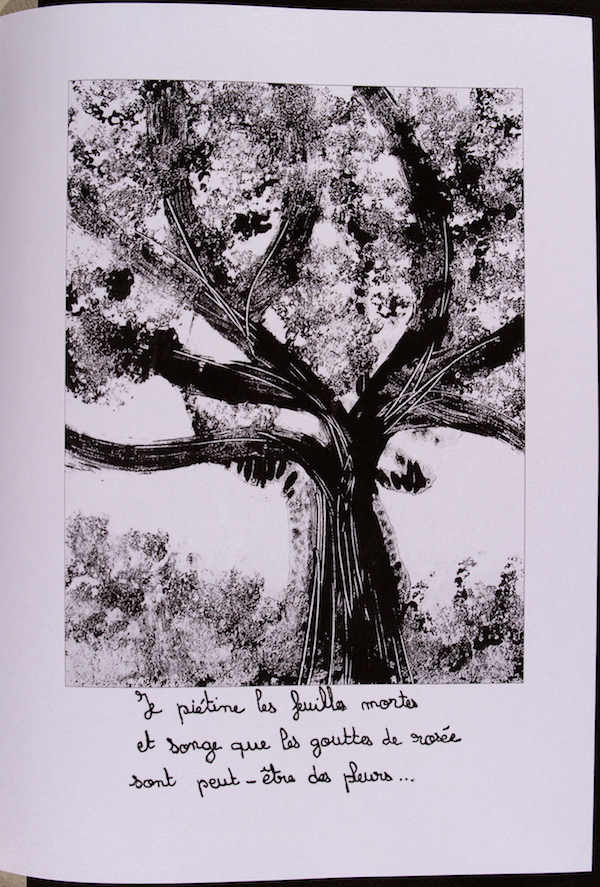 Je piétine les feuilles mortes
et songe que les gouttes de rosée
sont peut-être des pleurs...